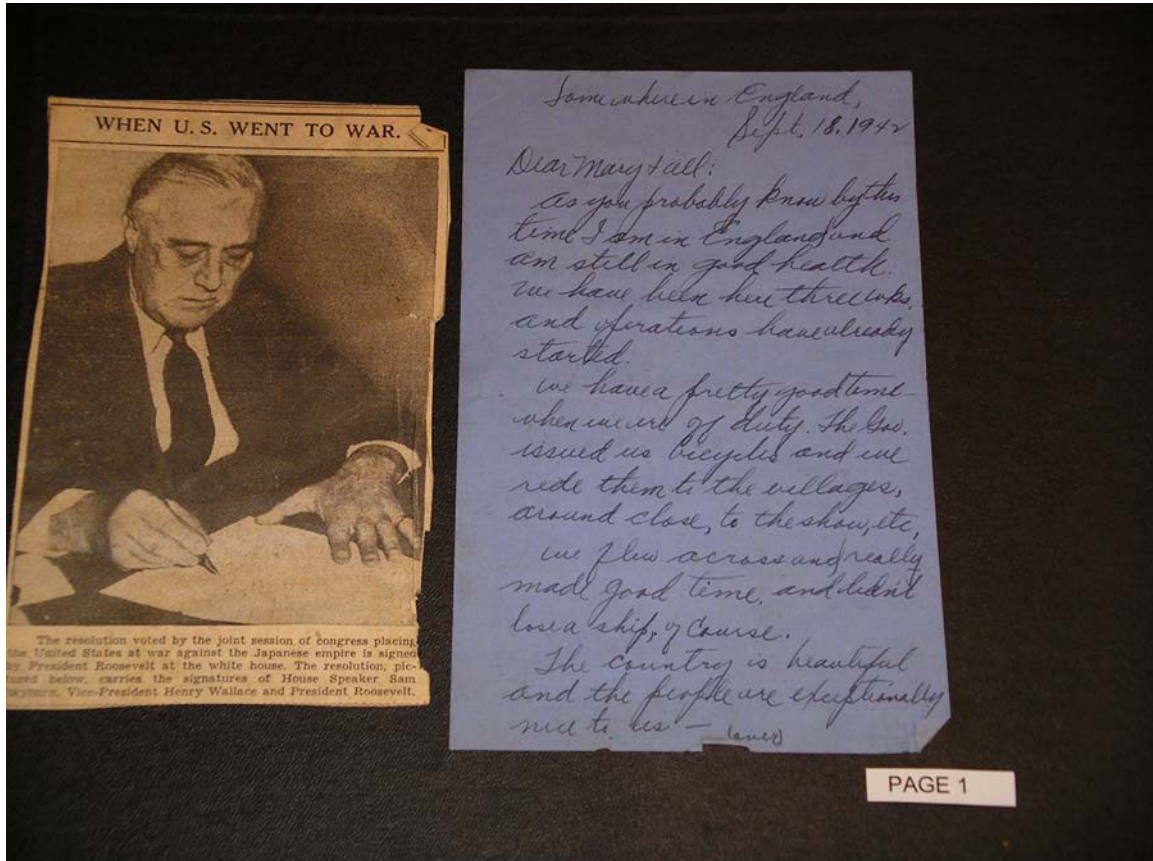 WHEN U. S. WENT TO WAR.
The resolution voted by the joint session of congress placing
the United States at war against the Japanese empire is signed
by President Roosevelt at the white house. The resolution, pic-
tured below, carries the signatures of House Speaker Sam
Rayburn, Vice-President Henry Wallace and President Roosevelt.
Somewhere in England,
Sept. 18, 1942
Dear Mary & all:
As you probably know by this
time I am in England and
am still in good health.
We have been here three wks.
and operations have already
started.
We have a pretty good time
when we are off duty. The Gov.
issued us bicycles and we
ride them to the villages,
around close, to the show, etc,
We flew across and really
made good time, and didn't
lose a ship, of course.
The country is beautiful
and the people are exceptionally
nice to us — (over)
PAGE 1